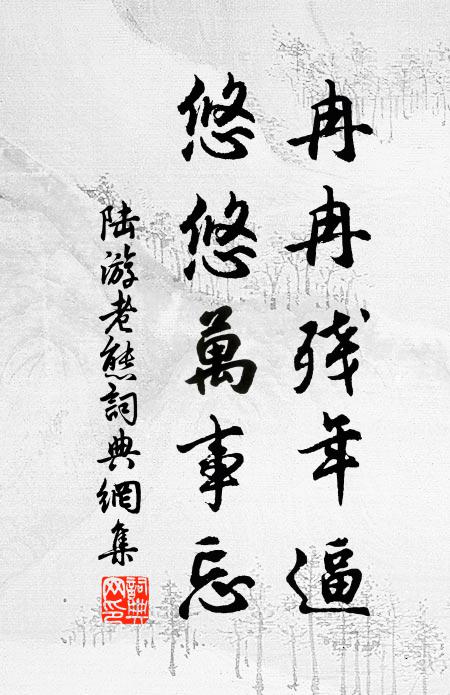 冉冉残年逼
悠悠萬事忘
陆游老態詞典網集
詞典網印